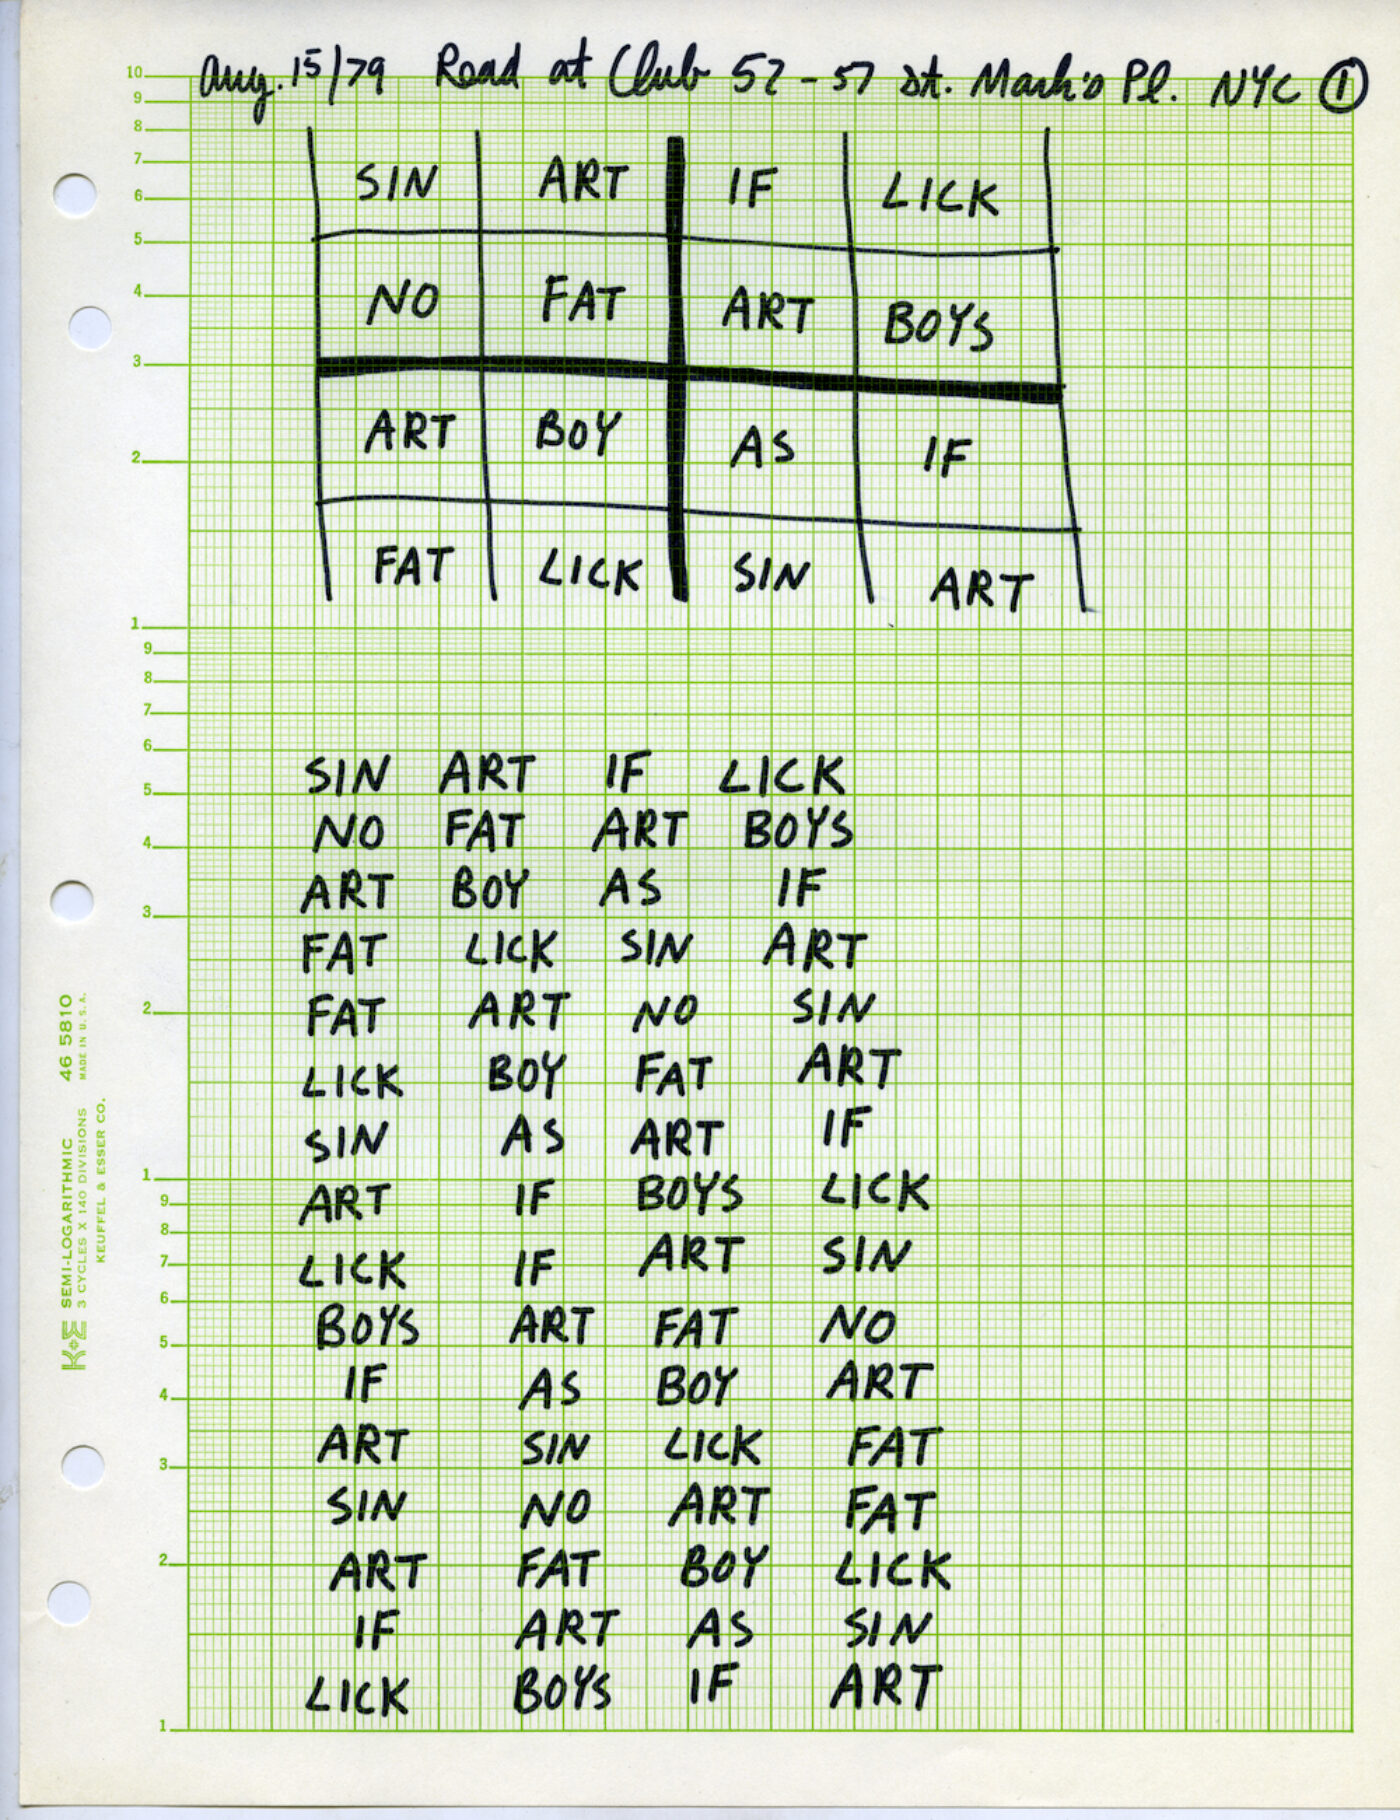 Aug. 15/79 Read at Club 57 - 57 St. Mark's Pl. NYC ①
SIN ART IF LICK
NO FAT ART BOYS
ART BOY AS IF
FAT LICK SIN ART
SIN ART IF LICK
NO FAT ART BOYS
ART BOY AS IF
FAT LICK SIN ART
FAT ART NO SIN
LICK BOY FAT ART
SIN AS ART IF
ART IF BOYS LICK
LICK IF ART SIN
BOYS ART FAT NO
IF AS BOY ART
ART SIN LICK FAT
SIN NO ART FAT
ART FAT BOY LICK
IF ART AS SIN
LICK BOYS IF ART
10
9
8
7
6
5
4
3
2
1
9
8
7
6
5
4
3
2
1
9
8
7
6
5
4
3
2
1
K+E SEMI-LOGARITHMIC 46 5810
3 CYCLES X 140 DIVISIONS MADE IN U.S.A.
KEUFFEL & ESSER CO.